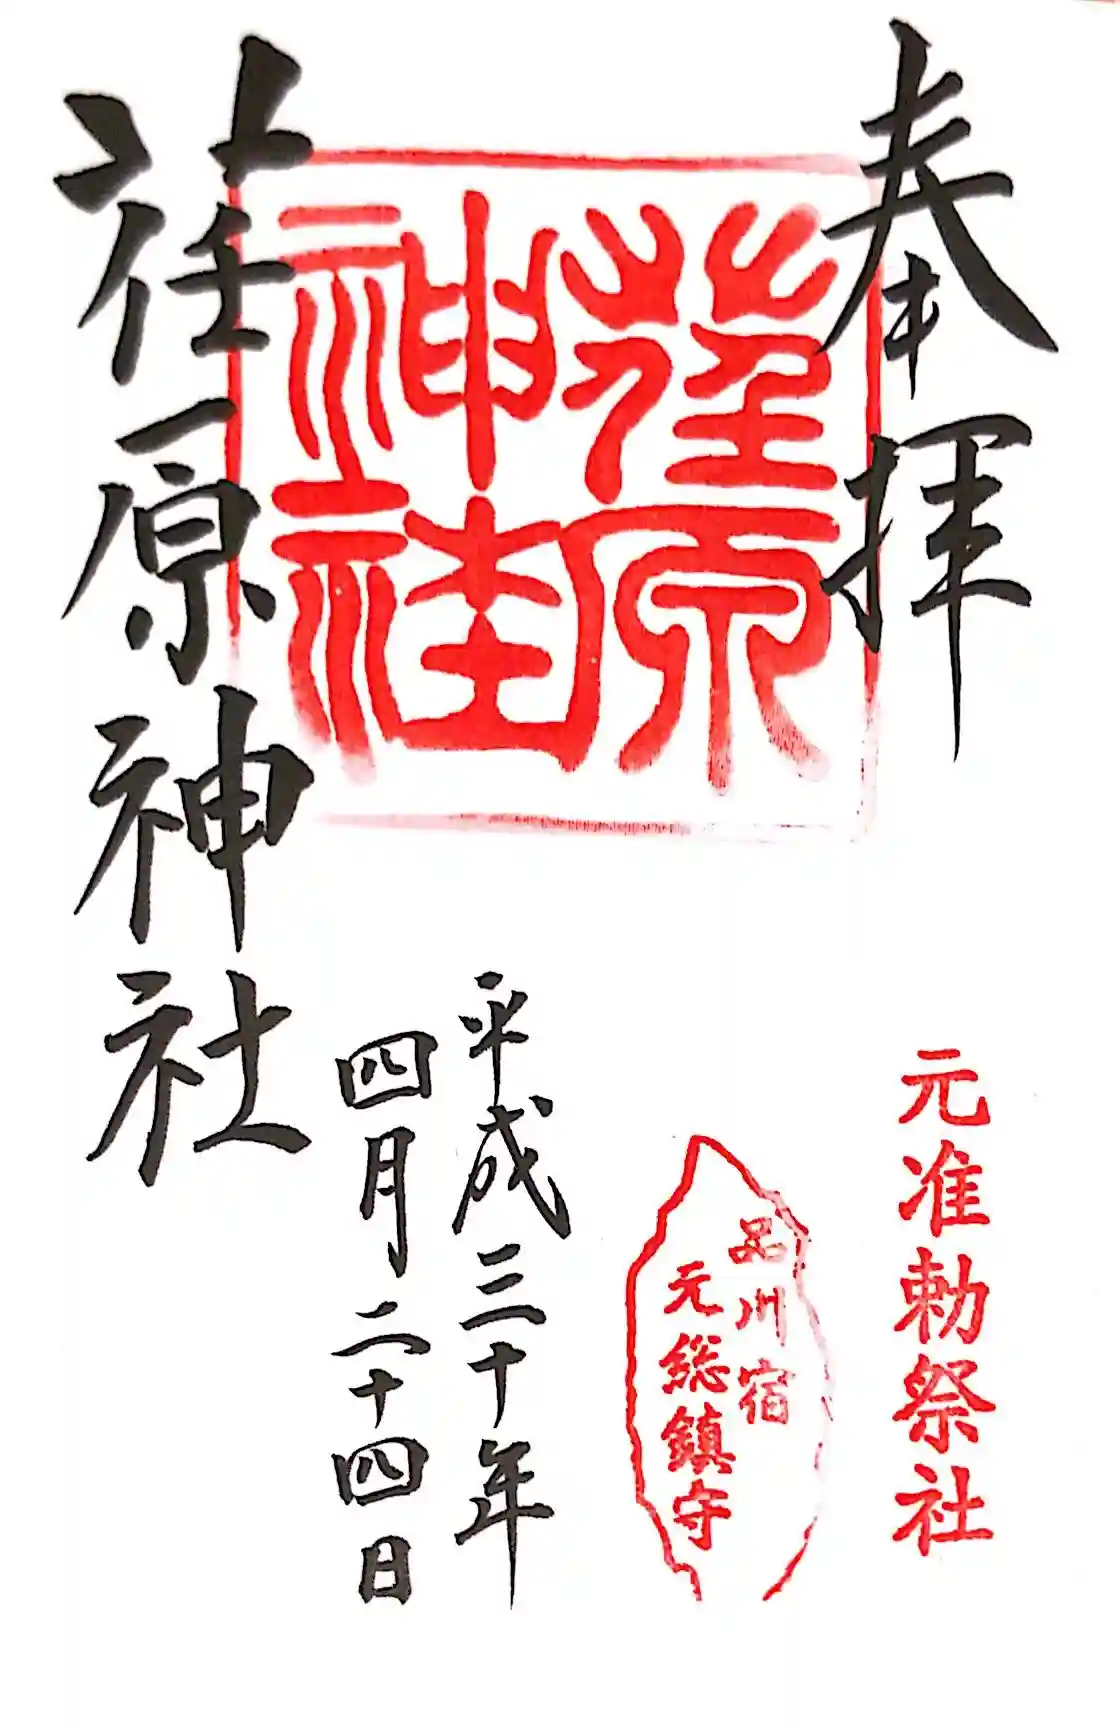 奉拝
元准勅祭社
荏原神社
品川宿
元総鎮守
平成三十年
四月二十四日
荏原神社